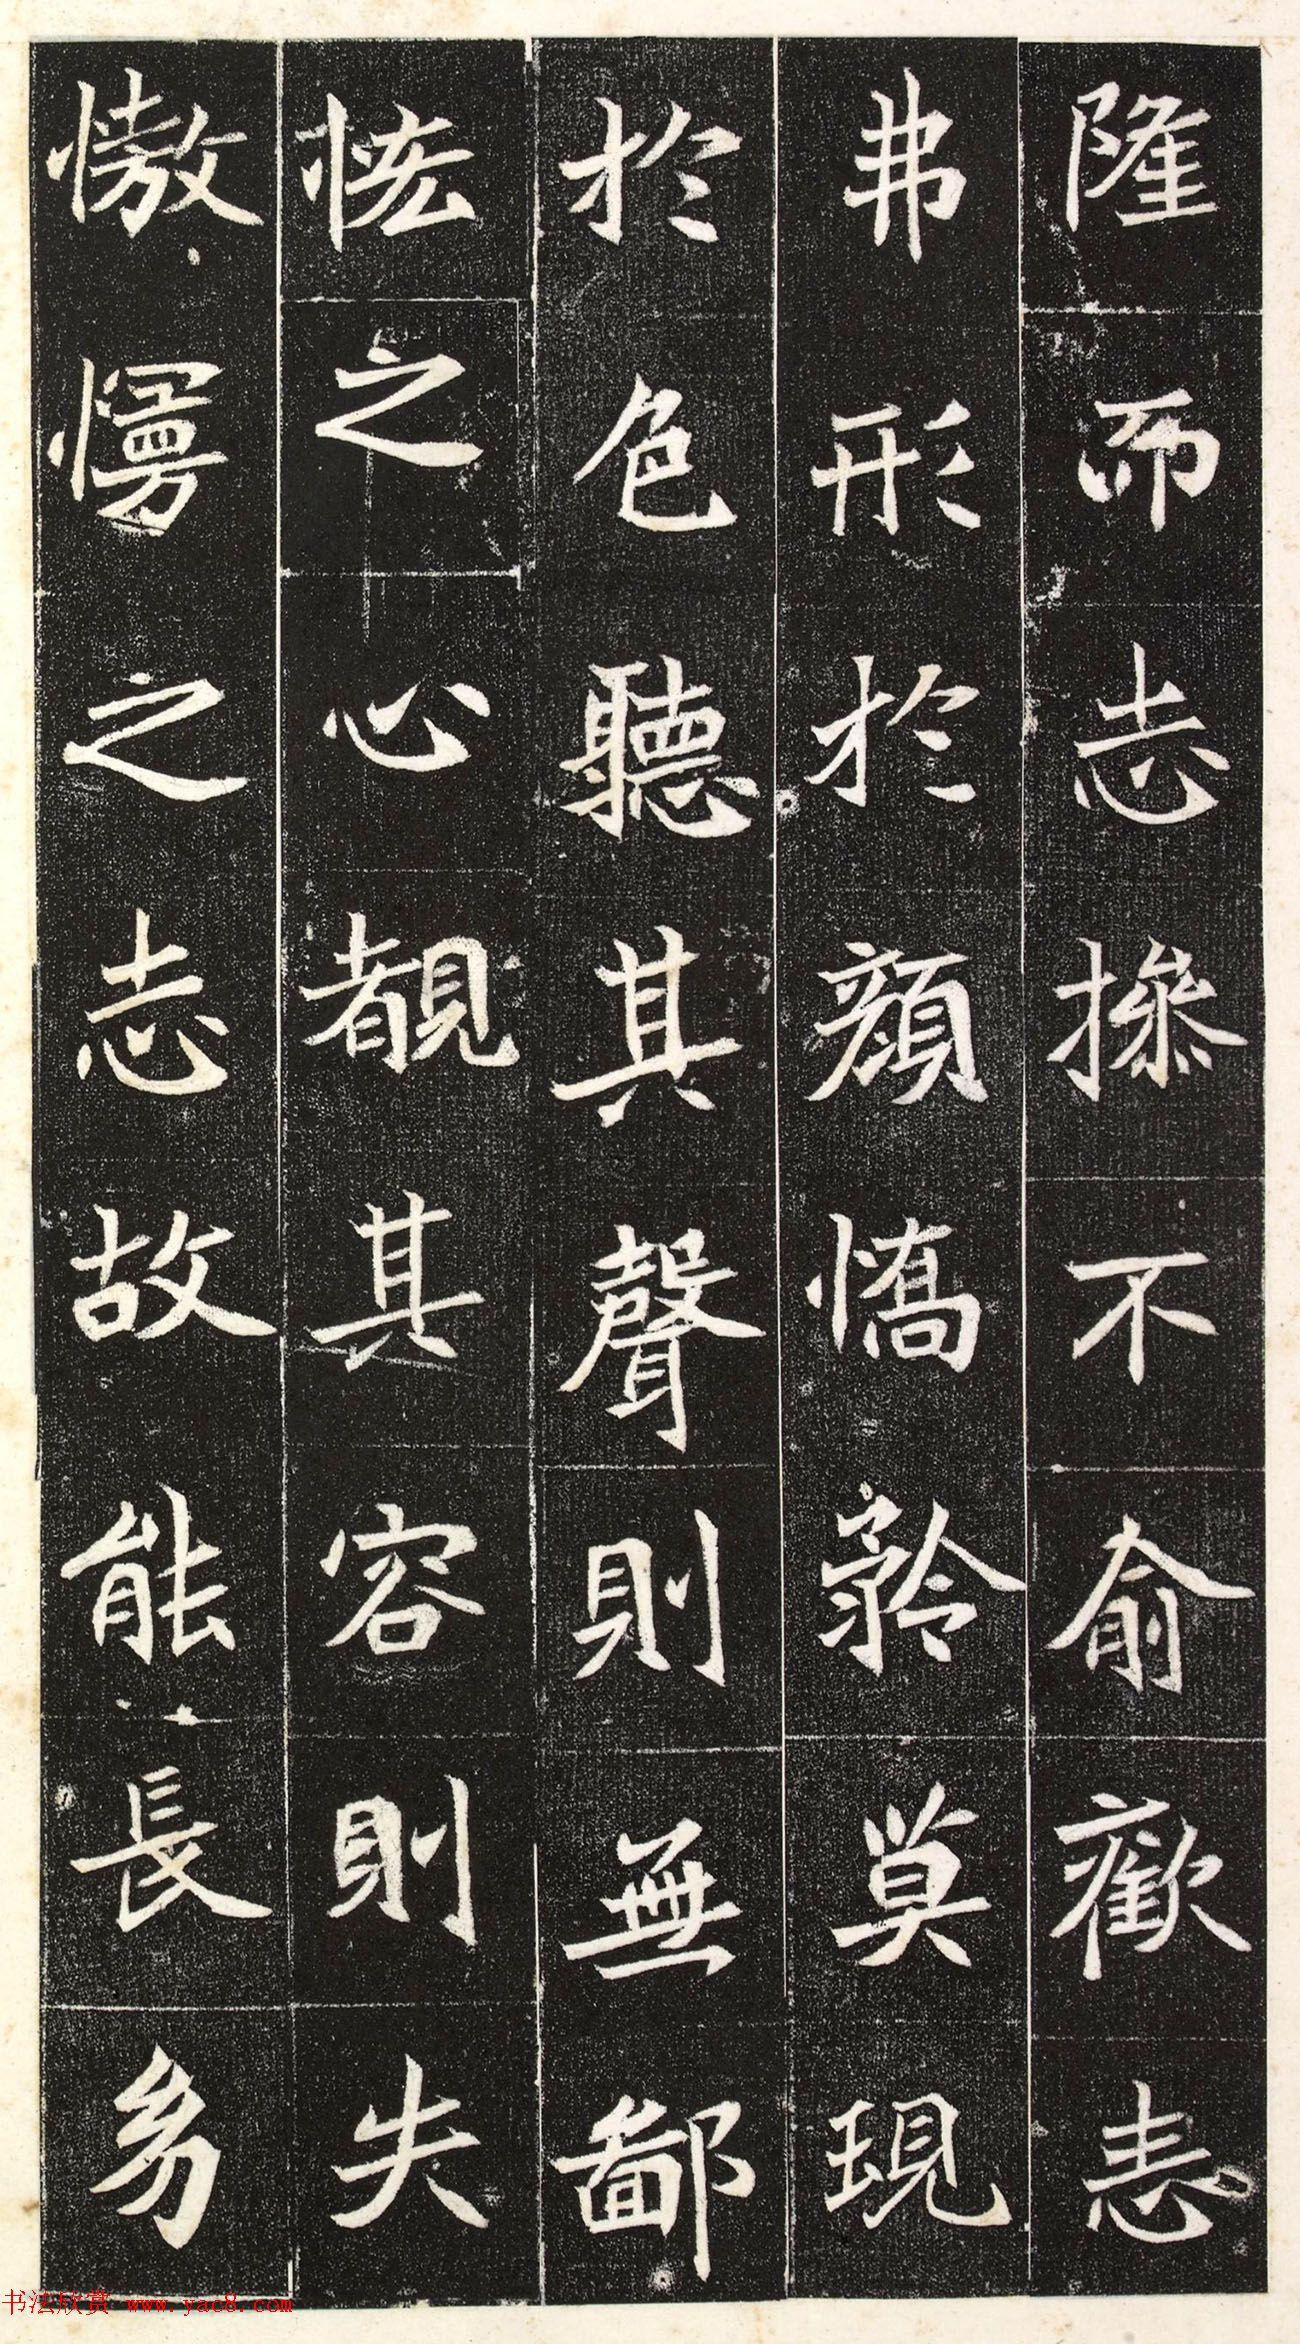 隆而志操不俞歡恚
弗形於顔憍矜莫現
於色聽其聲則無鄙
恡之心覩其容則失
慠慢之志故能長㓜
书法欣赏 www.yac8.com